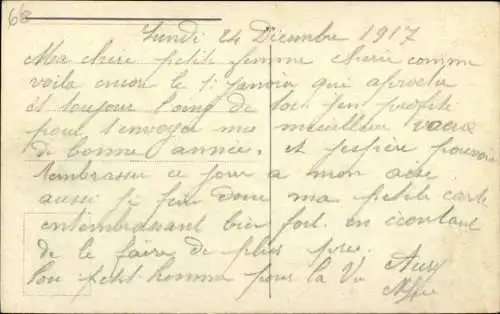 68
Lundi 24 Dicembre 1917
Ma chere petit femme cherie comme
voila encore le 1r janvier qui aproche
et toujour loing de toi j'en profite
pour t'envoyer mes meilleur vaeux
de bonne année, et j'espère pouvoir
t'embrasser ce jour a mon aise
aussi je fini donc ma petite carte
en t'embrassant bien fort en
de le faire de plus pres.
ton petit homme pour la Vie